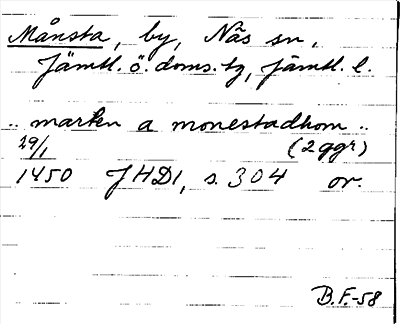 Månsta, by, Näs sn,
Jämtl. ö. doms. tg, Jämtl. l.
.. marken a monestadhom ..
29/1 (2 ggr)
1450 JHD1, s. 304 or.
B.F.-58